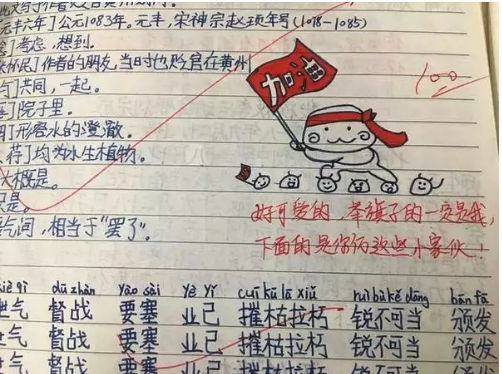 元丰六年]公元1083年。元丰,宋神宗赵顼年号(1078-1085)
]考虑,想到。
怀民]作者的朋友,当时也贬官在黄州
]共同,一起。
]院子里。
]形容水的澄澈。
荇]均为水生植物。
大概是。
只是。
相当于“罢了”。
加油
100
好可爱的,举旗子的一定是我,
下面的是你们这些小家伙!
qì dū zhàn yào sài yè yǐ cuī kū lā xiǔ ruì bù kě dāng bān fā
气 督战 要塞 业已 摧枯拉朽 锐不可当 颁发
气 督战 要塞 业已 摧枯拉朽 锐不可当 颁发
气 督战 要塞 业已 摧枯拉朽 锐不可当 颁发